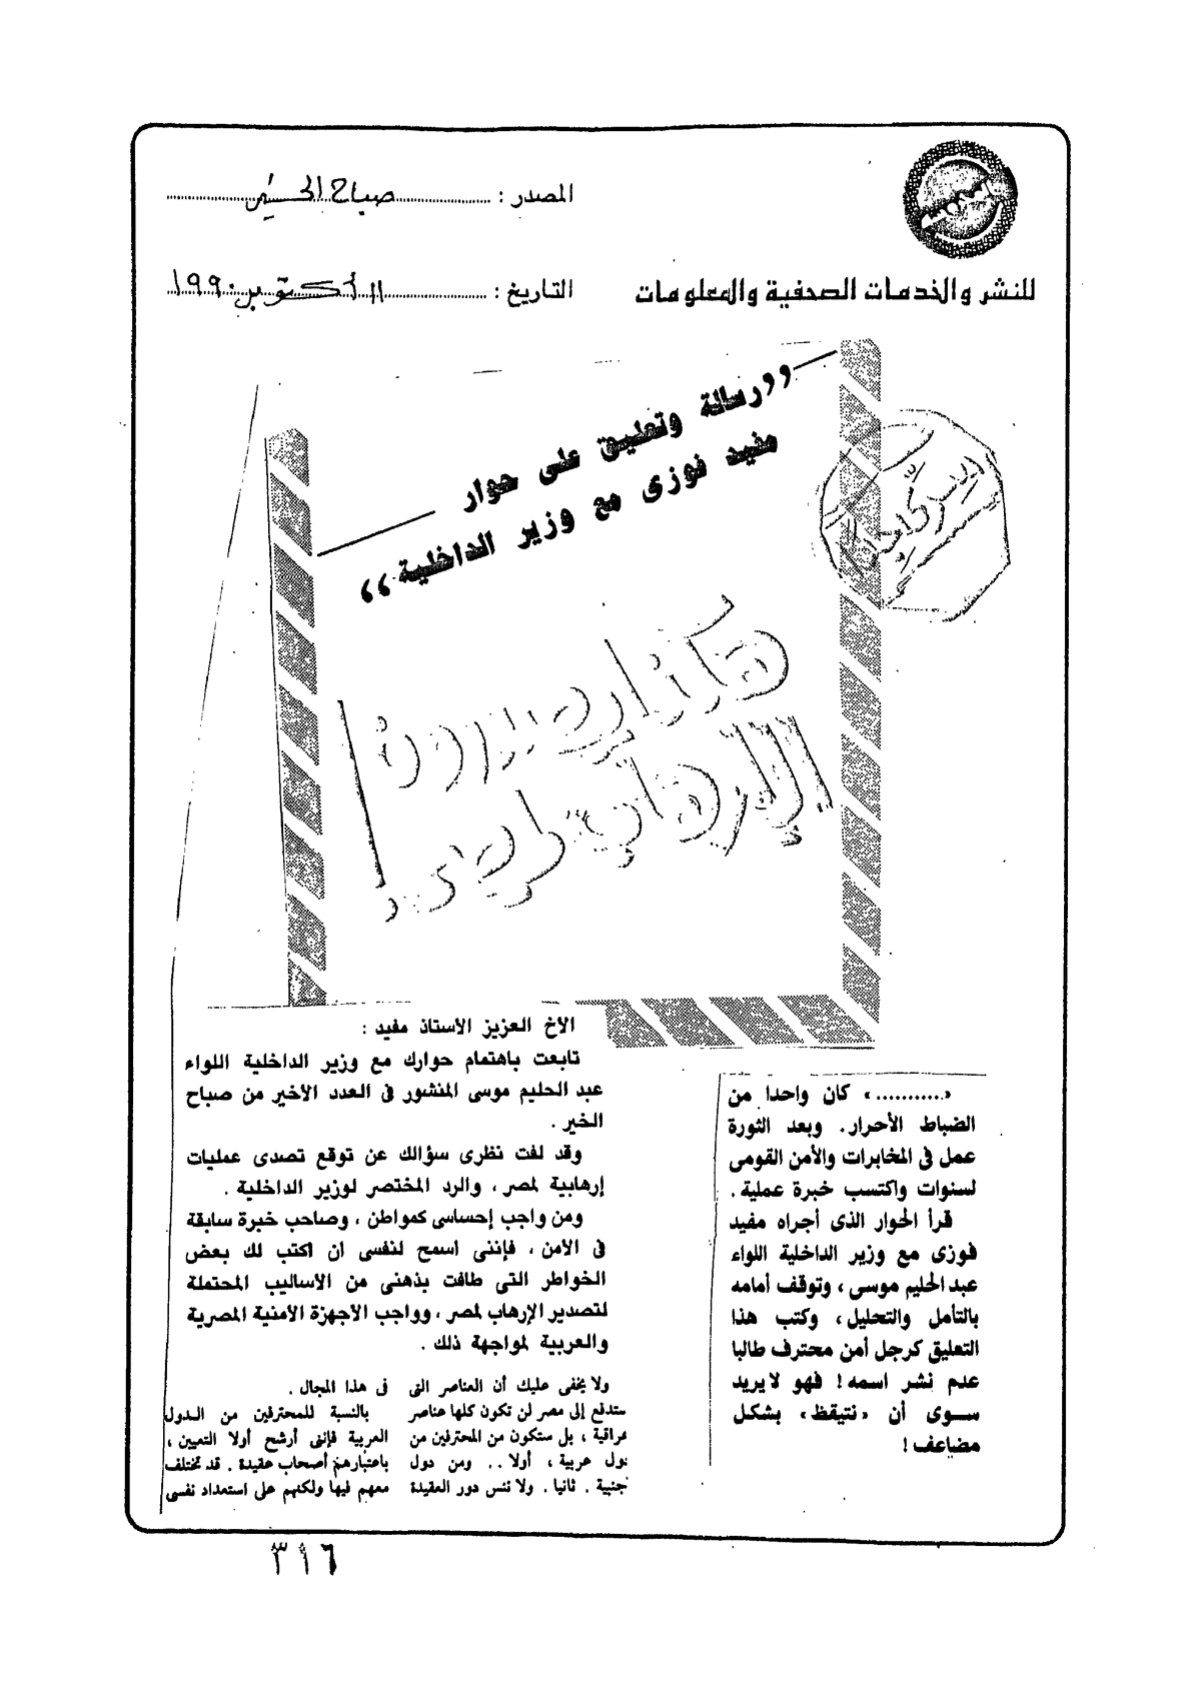 المصدر : صباح الخير
للنشر والخدمات الصحفية والمعلومات
التاريخ : ١١ أكتوبر ١٩٩٠
,,رسالة وتعليق على حوار
مفيد فوزى مع وزير الداخلية,,
هكذا يصدرون
الإرهاب لمصر!
«...........» كان واحدا من
الضباط الأحرار. وبعد الثورة
عمل فى المخابرات والأمن القومى
لسنوات واكتسب خبرة عملية.
قرأ الحوار الذى أجراه مفيد
فوزى مع وزير الداخلية اللواء
عبد الحليم موسى، وتوقف أمامه
بالتأمل والتحليل، وكتب هذا
التعليق كرجل أمن محترف طالبا
عدم نشر اسمه! فهو لا يريد
سوى أن «نتيقظ» بشكل
مضاعف!
الأخ العزيز الاستاذ مفيد :
تابعت باهتمام حوارك مع وزير الداخلية اللواء
عبد الحليم موسى المنشور فى العدد الأخير من صباح
الخير .
وقد لفت نظرى سؤالك عن توقع تصدى عمليات
إرهابية لمصر ، والرد المختصر لوزير الداخلية .
ومن واجب إحساسى كمواطن ، وصاحب خبرة سابقة
فى الأمن ، فإننى أسمح لنفسى ان اكتب لك بعض
الخواطر التى طافت بذهنى من الأساليب المحتملة
لتصدير الإرهاب لمصر ، وواجب الأجهزة الأمنية المصرية
والعربية لمواجهة ذلك .
ولا يخفى عليك أن العناصر التى
ستدفع إلى مصر لن تكون كلها عناصر
عراقية ، بل ستكون من المحترفين من
دول عربية ، أولا .. ومن دول
أجنبية . ثانيا . ولا ننس دور العقيدة
فى هذا المجال .
بالنسبة للمحترفين من الدول
العربية فإننى أرشح أولا التعيين ،
باعتبارهم أصحاب عقيدة . قد تختلف
معهم فيها ولكنهم على استعداد نفسى
٣١٦